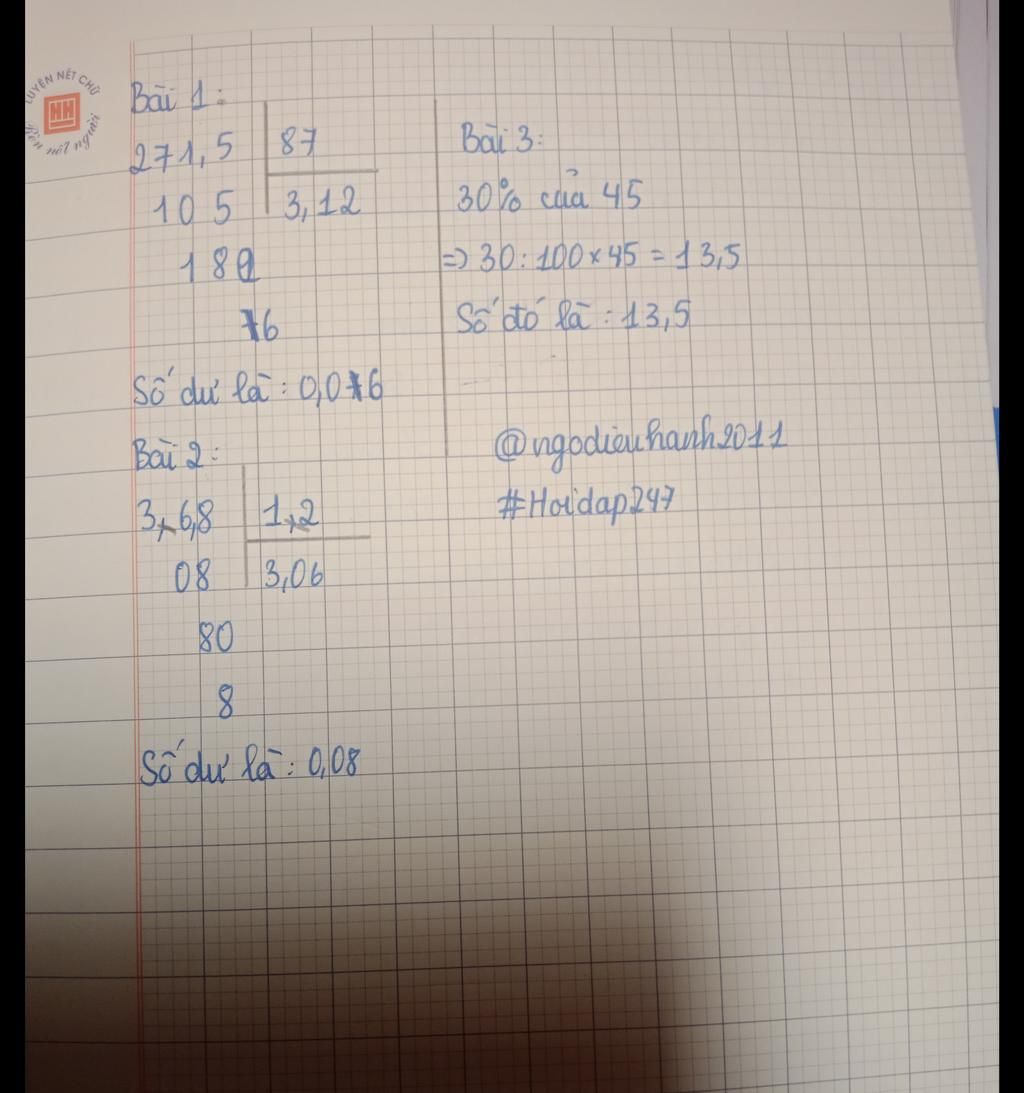 LUYỆN NÉT CHỮ
NH
Rèn nết người
Bài 1:
271,5 87
105 3,12
180
06
Số dư là: 0,06
Bài 2:
3,6,8 1,2
08 3,06
80
8
Số dư là: 0,08
Bài 3:
30% của 45
=> 30:100×45=13,5
Số đó là: 13,5
@ngodieuhanh2011
#Hoidap247